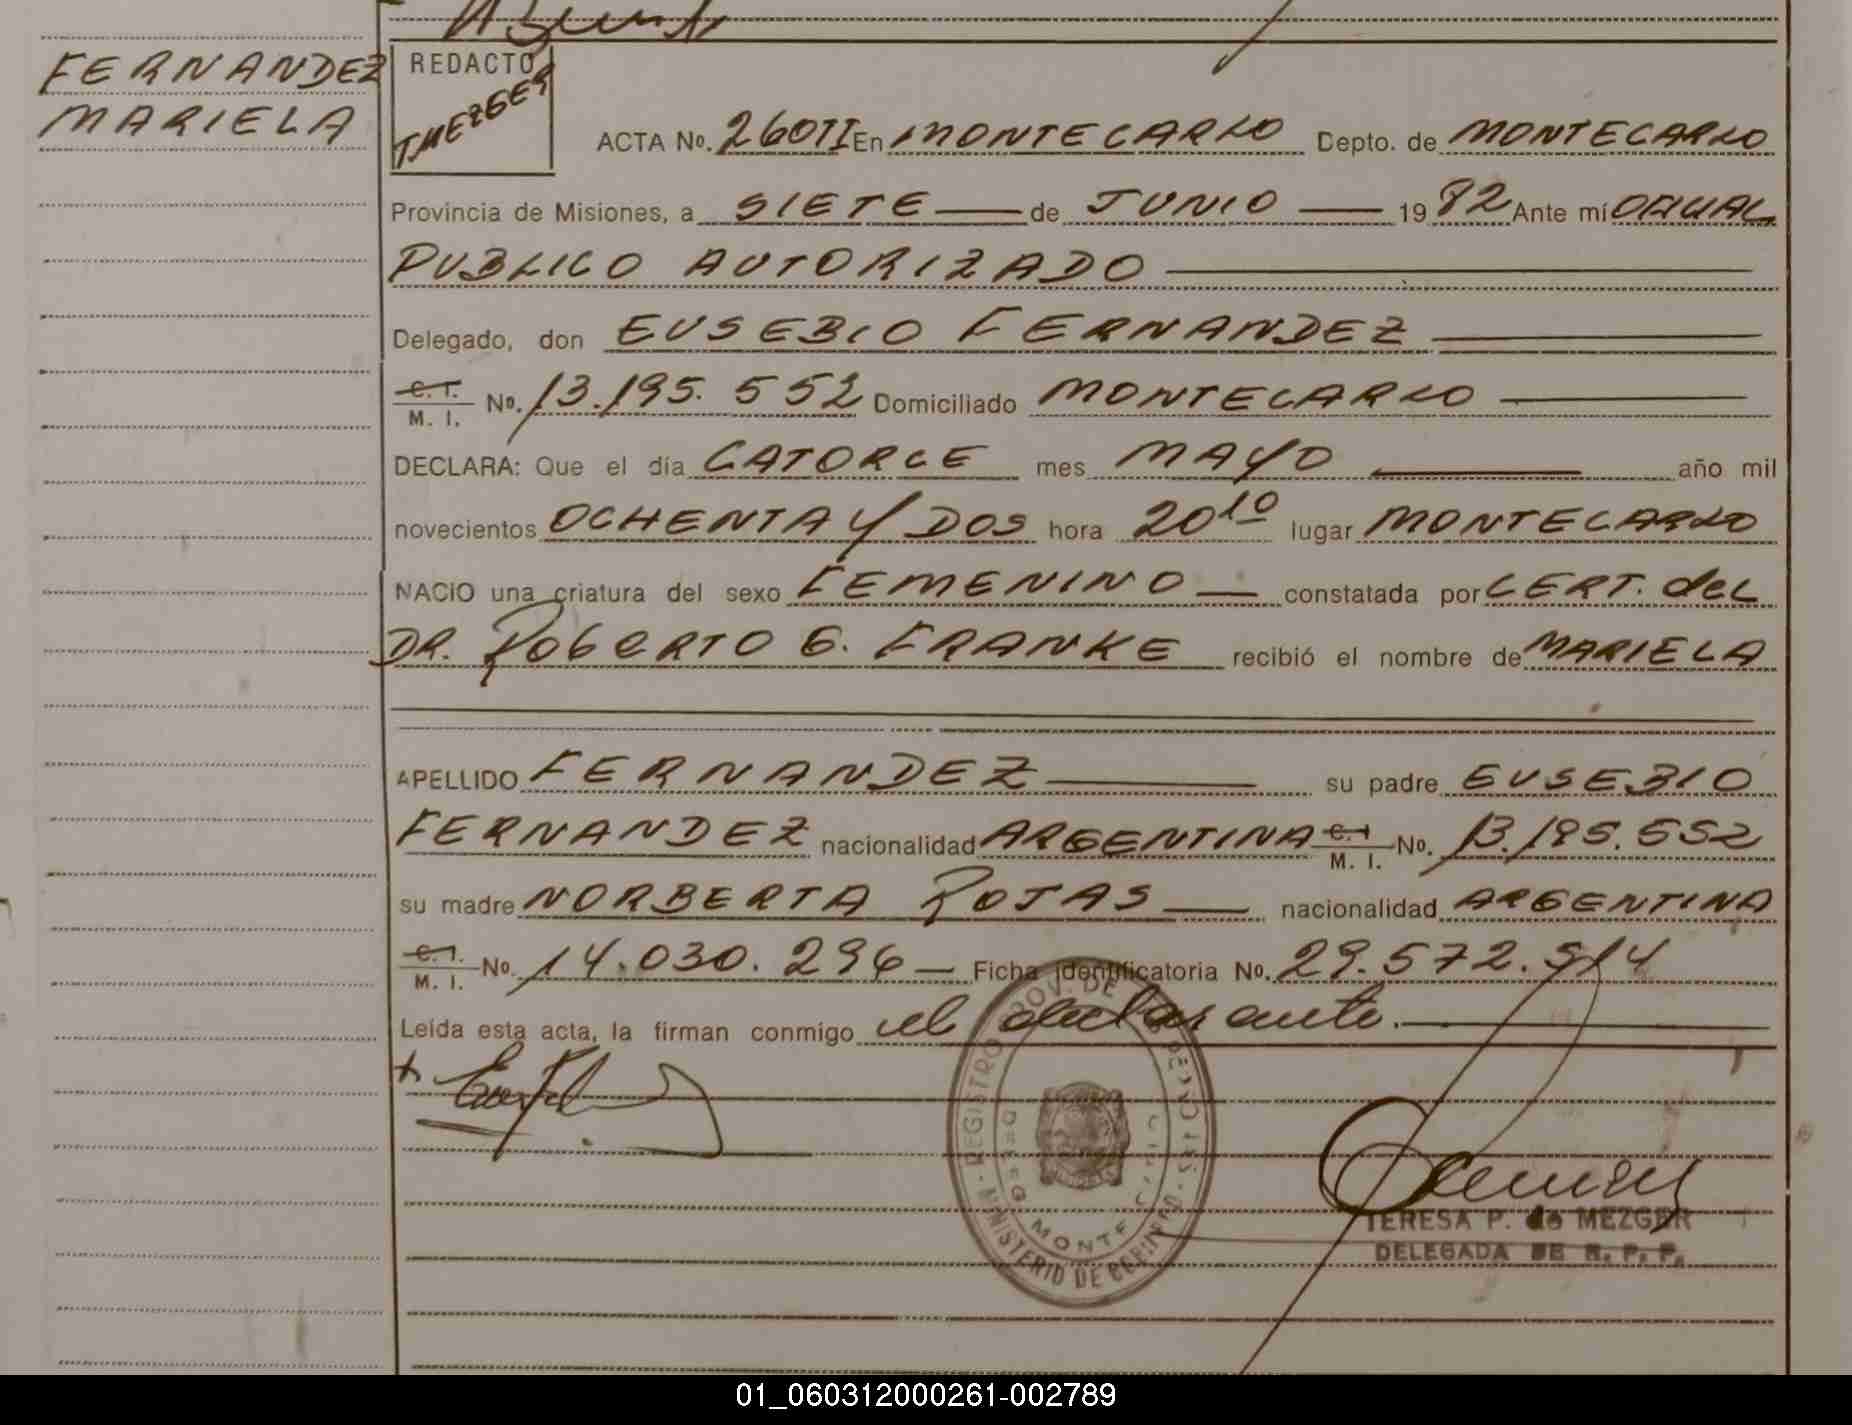 FERNANDEZ
MARIELA
REDACTO
T.MEZGER
ACTA No. 260TI En MONTECARLO Depto. de MONTECARLO
Provincia de Misiones, a SIETE de JUNIO 1982 Ante mí OFICIAL
PUBLICO AUTORIZADO
Delegado, don EUSEBIO FERNANDEZ
C. I.
M. I. No. 13.195.552 Domiciliado MONTECARLO
DECLARA: Que el día CATORCE mes MAYO año mil
novecientos OCHENTA Y DOS hora 20 10 lugar MONTECARLO
NACIO una criatura del sexo FEMENINO constatada por CERT. del
DR. RobERTO G. FRANKE recibió el nombre de MARIELA
APELLIDO FERNANDEZ su padre EUSEBIO
FERNANDEZ nacionalidad ARGENTINA C. I. M. I. No. 13.195.552
su madre NORBERTA ROJAS nacionalidad ARGENTINA
C. I.
M. I. No. 14.030.296 Ficha identificatoria No. 29.572.514
Leída esta acta, la firman conmigo el declarante.
REGISTRO PROV. DE LAS PERSONAS
MINISTERIO DE GOBIERNO
TERESA P. de MEZGER
DELEGADA DE R. P. P.
01_060312000261-002789